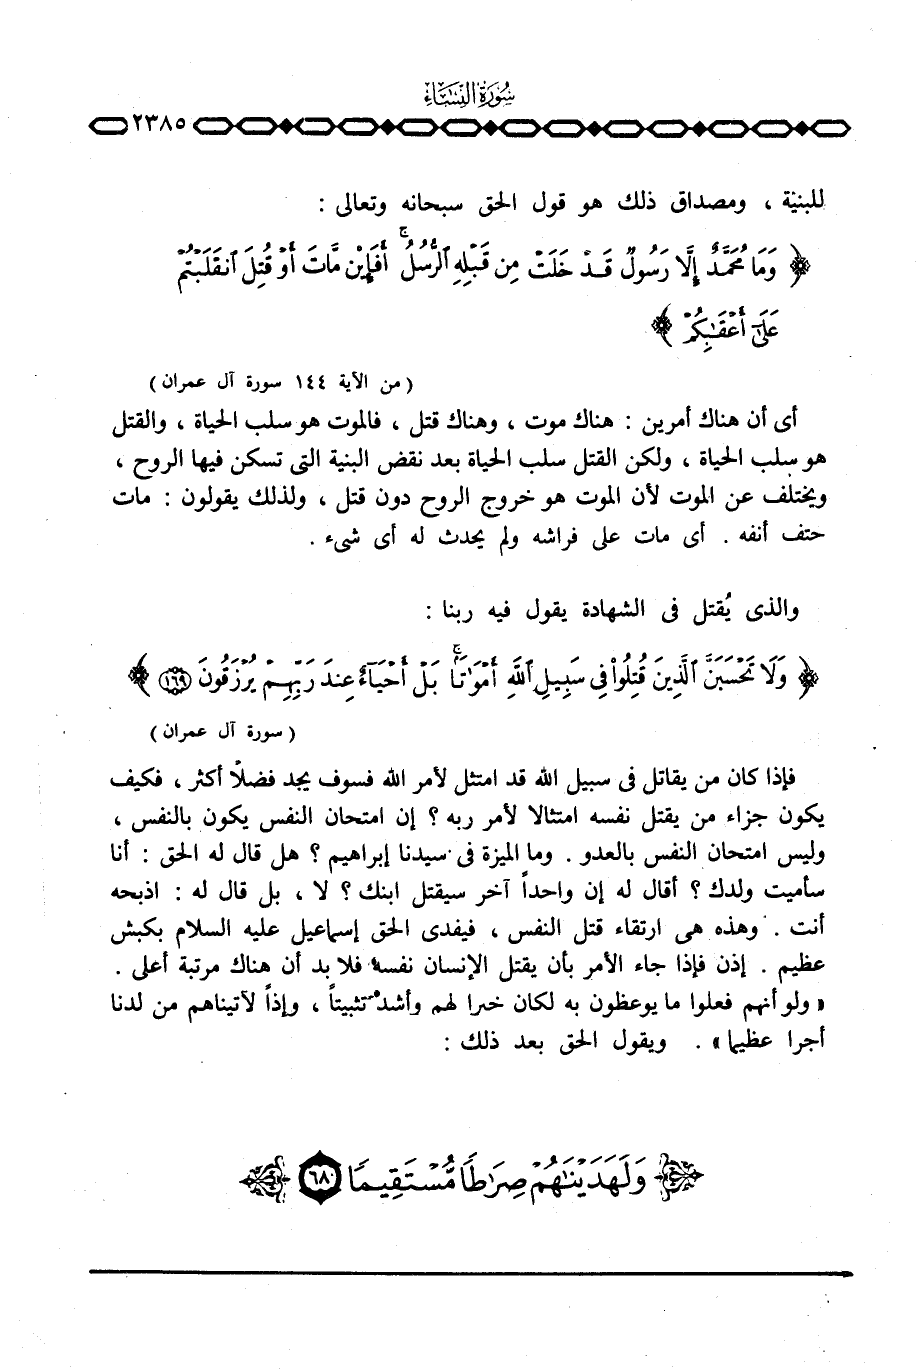 سُورَةُ النِّسَاءِ
٢٣٨٥
للبنية ، ومصداق ذلك هو قول الحق سبحانه وتعالى :
﴿ وَمَا مُحَمَّدٌ إِلَّا رَسُولٌ قَدْ خَلَتْ مِن قَبْلِهِ ٱلرُّسُلُ ۚ أَفَإِيْن مَّاتَ أَوْ قُتِلَ ٱنقَلَبْتُمْ
عَلَىٰٓ أَعْقَٰبِكُمْ ﴾
( من الآية ١٤٤ سورة آل عمران )
أى أن هناك أمرين : هناك موت ، وهناك قتل ، فالموت هو سلب الحياة ، والقتل
هو سلب الحياة ، ولكن القتل سلب الحياة بعد نقض البنية التى تسكن فيها الروح ،
ويختلف عن الموت لأن الموت هو خروج الروح دون قتل ، ولذلك يقولون : مات
حتف أنفه . أى مات على فراشه ولم يحدث له أى شىء .
والذى يُقتل فى الشهادة يقول فيه ربنا :
﴿ وَلَا تَحْسَبَنَّ ٱلَّذِينَ قُتِلُوا۟ فِى سَبِيلِ ٱللَّهِ أَمْوَٰتًۢا ۚ بَلْ أَحْيَآءٌ عِندَ رَبِّهِمْ يُرْزَقُونَ ١٦٩ ﴾
( سورة آل عمران )
فإذا كان من يقاتل فى سبيل الله قد امتثل لأمر الله فسوف يجد فضلًا أكثر ، فكيف
يكون جزاء من يقتل نفسه امتثالا لأمر ربه ؟ إن امتحان النفس يكون بالنفس ،
وليس امتحان النفس بالعدو . وما الميزة فى سيدنا إبراهيم ؟ هل قال له الحق : أنا
سأميت ولدك ؟ أقال له إن واحداً آخر سيقتل ابنك ؟ لا ، بل قال له : اذبحه
أنت . وهذه هى ارتقاء قتل النفس ، فيفدى الحق إسماعيل عليه السلام بكبش
عظيم . إذن فإذا جاء الأمر بأن يقتل الإنسان نفسه فلا بد أن هناك مرتبة أعلى .
« ولو أنهم فعلوا ما يوعظون به لكان خيرا لهم وأشد تثبيتاً ، وإذاً لآتيناهم من لدنا
أجرا عظيما » . ويقول الحق بعد ذلك :
وَلَهَدَيْنَٰهُمْ صِرَٰطًا مُّسْتَقِيمًا ٦٨